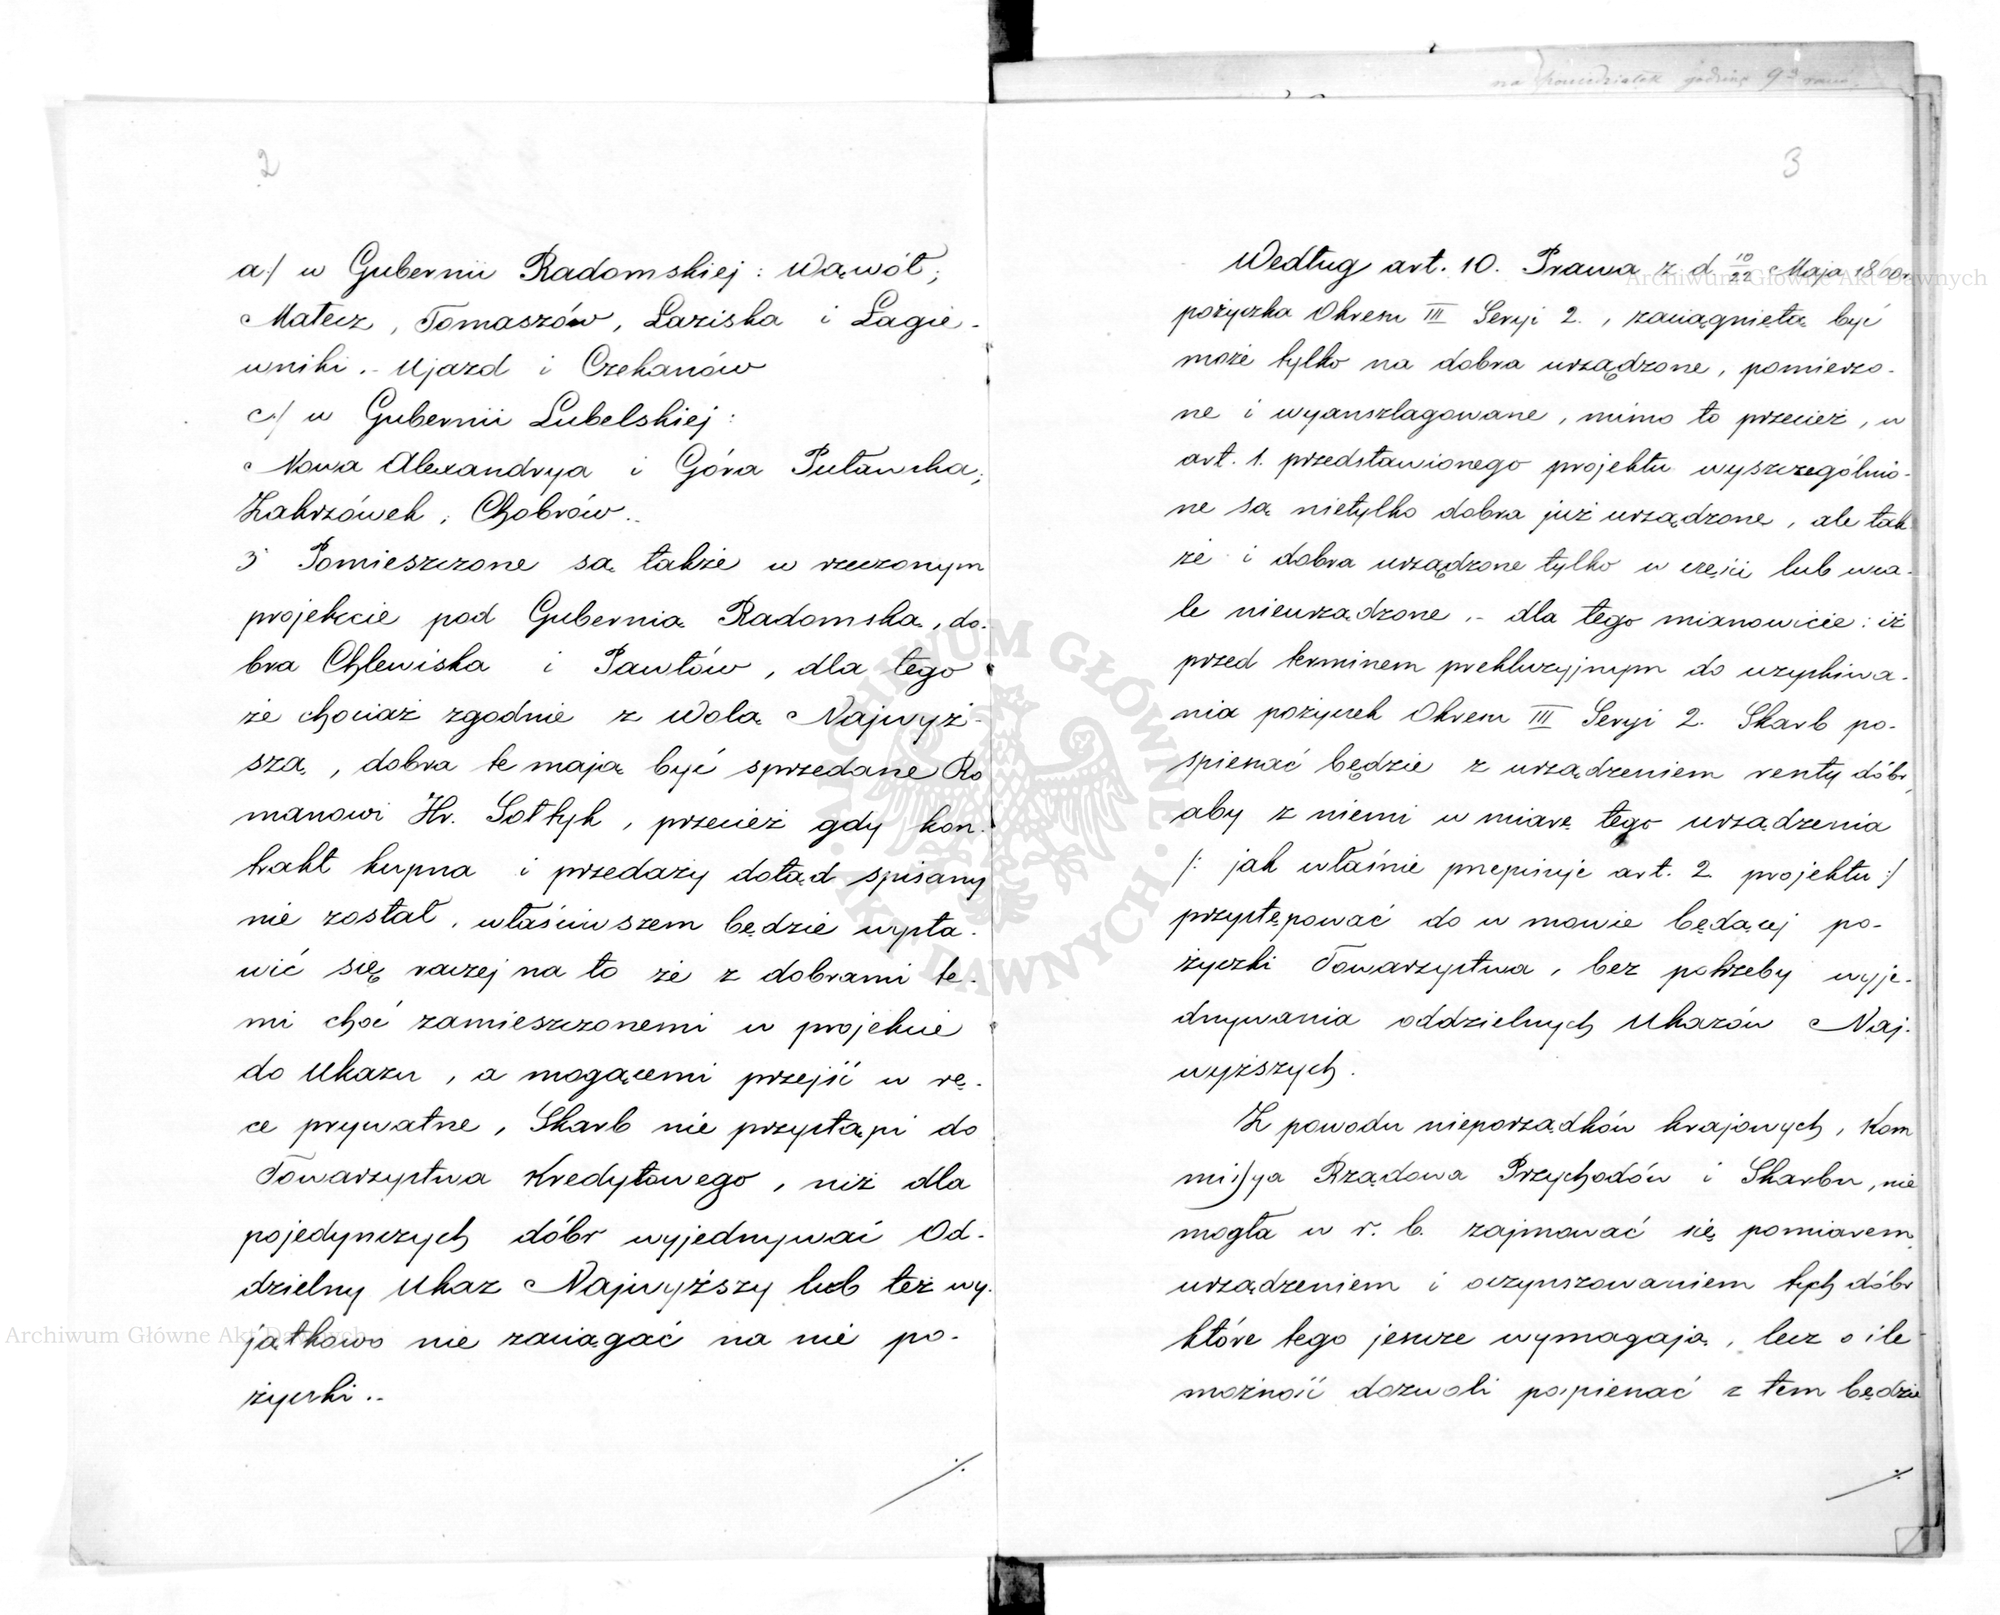 2
a./ w Gubernii Radomskiej: Wąwół;
Matecz, Tomaszów, Laziska i Lagie-
wniki.- Ujazd i Czekanów
c./ w Gubernii Lubelskiej:
Nowa Alexandrya i Góra Puławska;
Zakrzówek; Chobrów..
3 Pomieszczone są także w rzeczonym
projekcie pod Gubernią Radomską, do-
bra Chlewiska i Pawłów, dla tego
że chociaż zgodnie z Wolą Najwyż-
szą, dobra te mają być sprzedane Ro
manowi Hr. Sołtyk, przecież gdy kon-
trakt kupna i przedaży dotąd spisany
nie został, właściwszem będzie wysta-
wić się raczej na to że z dobrami te-
mi choć zamieszczonemi w projekcie
do Ukazu, a mogącemi przejść w rę-
ce prywatne, Skarb nie przystąpi do
Towarzystwa Kredytowego, niż dla
pojedynczych dóbr wyjednywać Od-
dzielny Ukaz Najwyższy lub też wy-
jątkowo nie zaciągać na nie po-
życzki..
./.
na poniedziałek godzinę 9 rano
3
Według art. 10. Prawa z d 10/22 Maja 1860r.
pożyczka Okresu III Seryi 2., zaciągniętą być
może tylko na dobra urządzone, pomierzo-
ne i wyanszlagowane, mimo to przecież, w
art. 1. przedstawionego projektu wyszczególnio-
ne są nietylko dobra już urządzone, ale tak
że i dobra urządzone tylko w części lub wca-
le nieurządzone.- dla tego mianowicie: iż
przed terminem prekluzyjnym do uzyskiwa-
nia pożyczek Okresu III Seryi 2. Skarb po-
spieszać będzie z urządzeniem reszty dóbr,
aby z niemi w miarę tego urządzenia
/: jak właśnie przepisuje art. 2 projektu :/
przystępować do w mowie będącej po-
życzki Towarzystwa, bez potrzeby wyje-
dnywania oddzielnych Ukazów Naj-
wyższych.
Z powodu nieporządków krajowych, Kom
missya Rządowa Przychodów i Skarbu, nie
mogła w r. b. zajmować się pomiarem,
urządzeniem i oczynszowaniem tych dóbr
które tego jeszcze wymagają, lecz o ile
możność dozwoli pospieszać z tem będzie
./.
Archiwum Główne Akt Dawnych
Archiwum Główne Akt Dawnych
ARCHIWUM GŁÓWNE AKT DAWNYCH